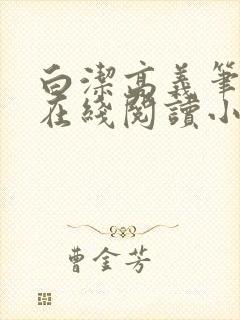 白潔高義筆
在綫閱讀小
曹金芳